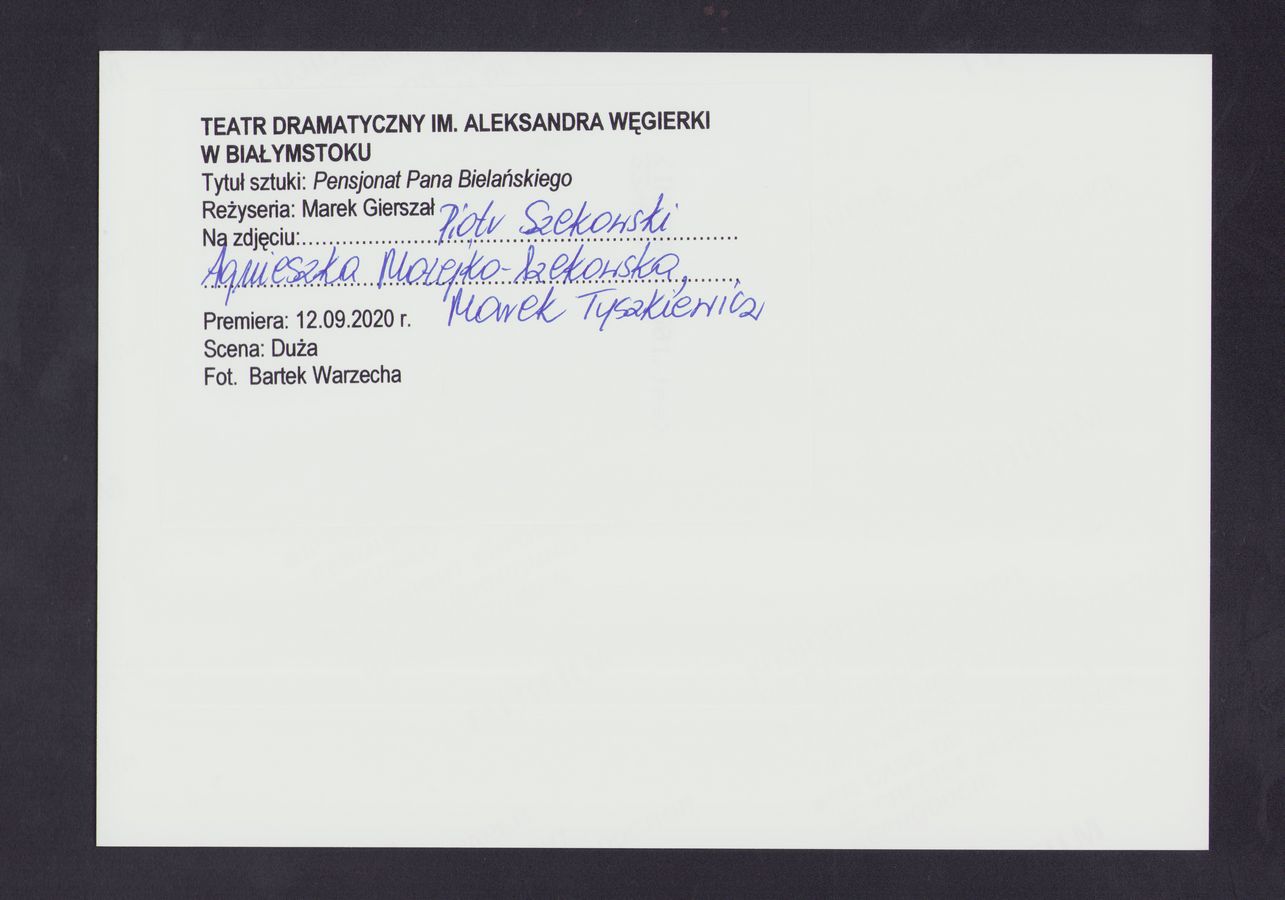 TEATR DRAMATYCZNY IM. ALEKSANDRA WĘGIERKI
W BIAŁYMSTOKU
Tytuł sztuki: Pensjonat Pana Bielańskiego
Reżyseria: Marek Gierszał
Na zdjęciu:.......... Piotr Szekowski
Agnieszka Możejko-Szekowska,
Marek Tyszkiewicz
Premiera: 12.09.2020 r.
Scena: Duża
Fot. Bartek Warzecha